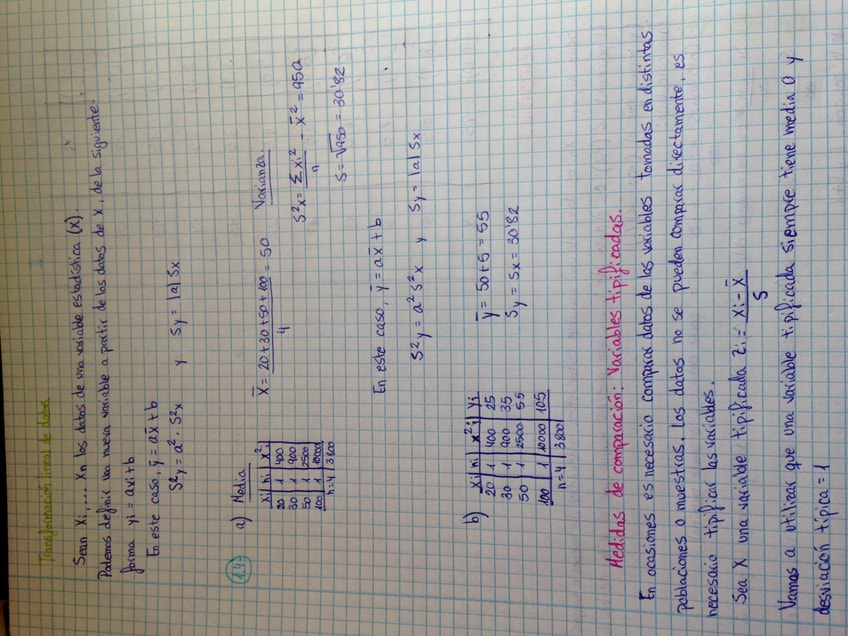 Transformación lineal de datos
Sean Xi,... Xn los datos de una variable estadística (X).
Podemos definir una nueva variable a partir de los datos de X, de la siguiente
forma yi = axi+b
En este caso, ȳ = ax̄+b
S²y = a² · S²x y Sy = |a| Sx
14. a) Media
xi | ni | x²i
20 | 1 | 400
30 | 1 | 900
50 | 1 | 2500
100 | 1 | 10000
n=4 | 3800
x̄ = (20+30+50+100)/4 = 50
Varianza.
S²x = Σxi²/n - x̄² = 950
S = √950 = 30'82
En este caso, ȳ = ax̄+b
S²y = a² S²x y Sy = |a| Sx
b)
xi | ni | x²i | Yi
20 | 1 | 400 | 25
30 | 1 | 900 | 35
50 | 1 | 2500 | 55
100 | 1 | 10000 | 105
n=4 | 3800
ȳ = 50+5 = 55
Sy = Sx = 30'82
Medidas de comparación: Variables tipificadas.
En ocasiones es necesario comparar datos de las variables tomadas en distintas
poblaciones o muestras. Los datos no se pueden comparar directamente, es
necesario tipificar las variables.
Sea X una variable tipificada zi = (xi - x̄)/S
Vamos a utilizar que una variable tipificada siempre tiene media 0 y
desviación típica = 1